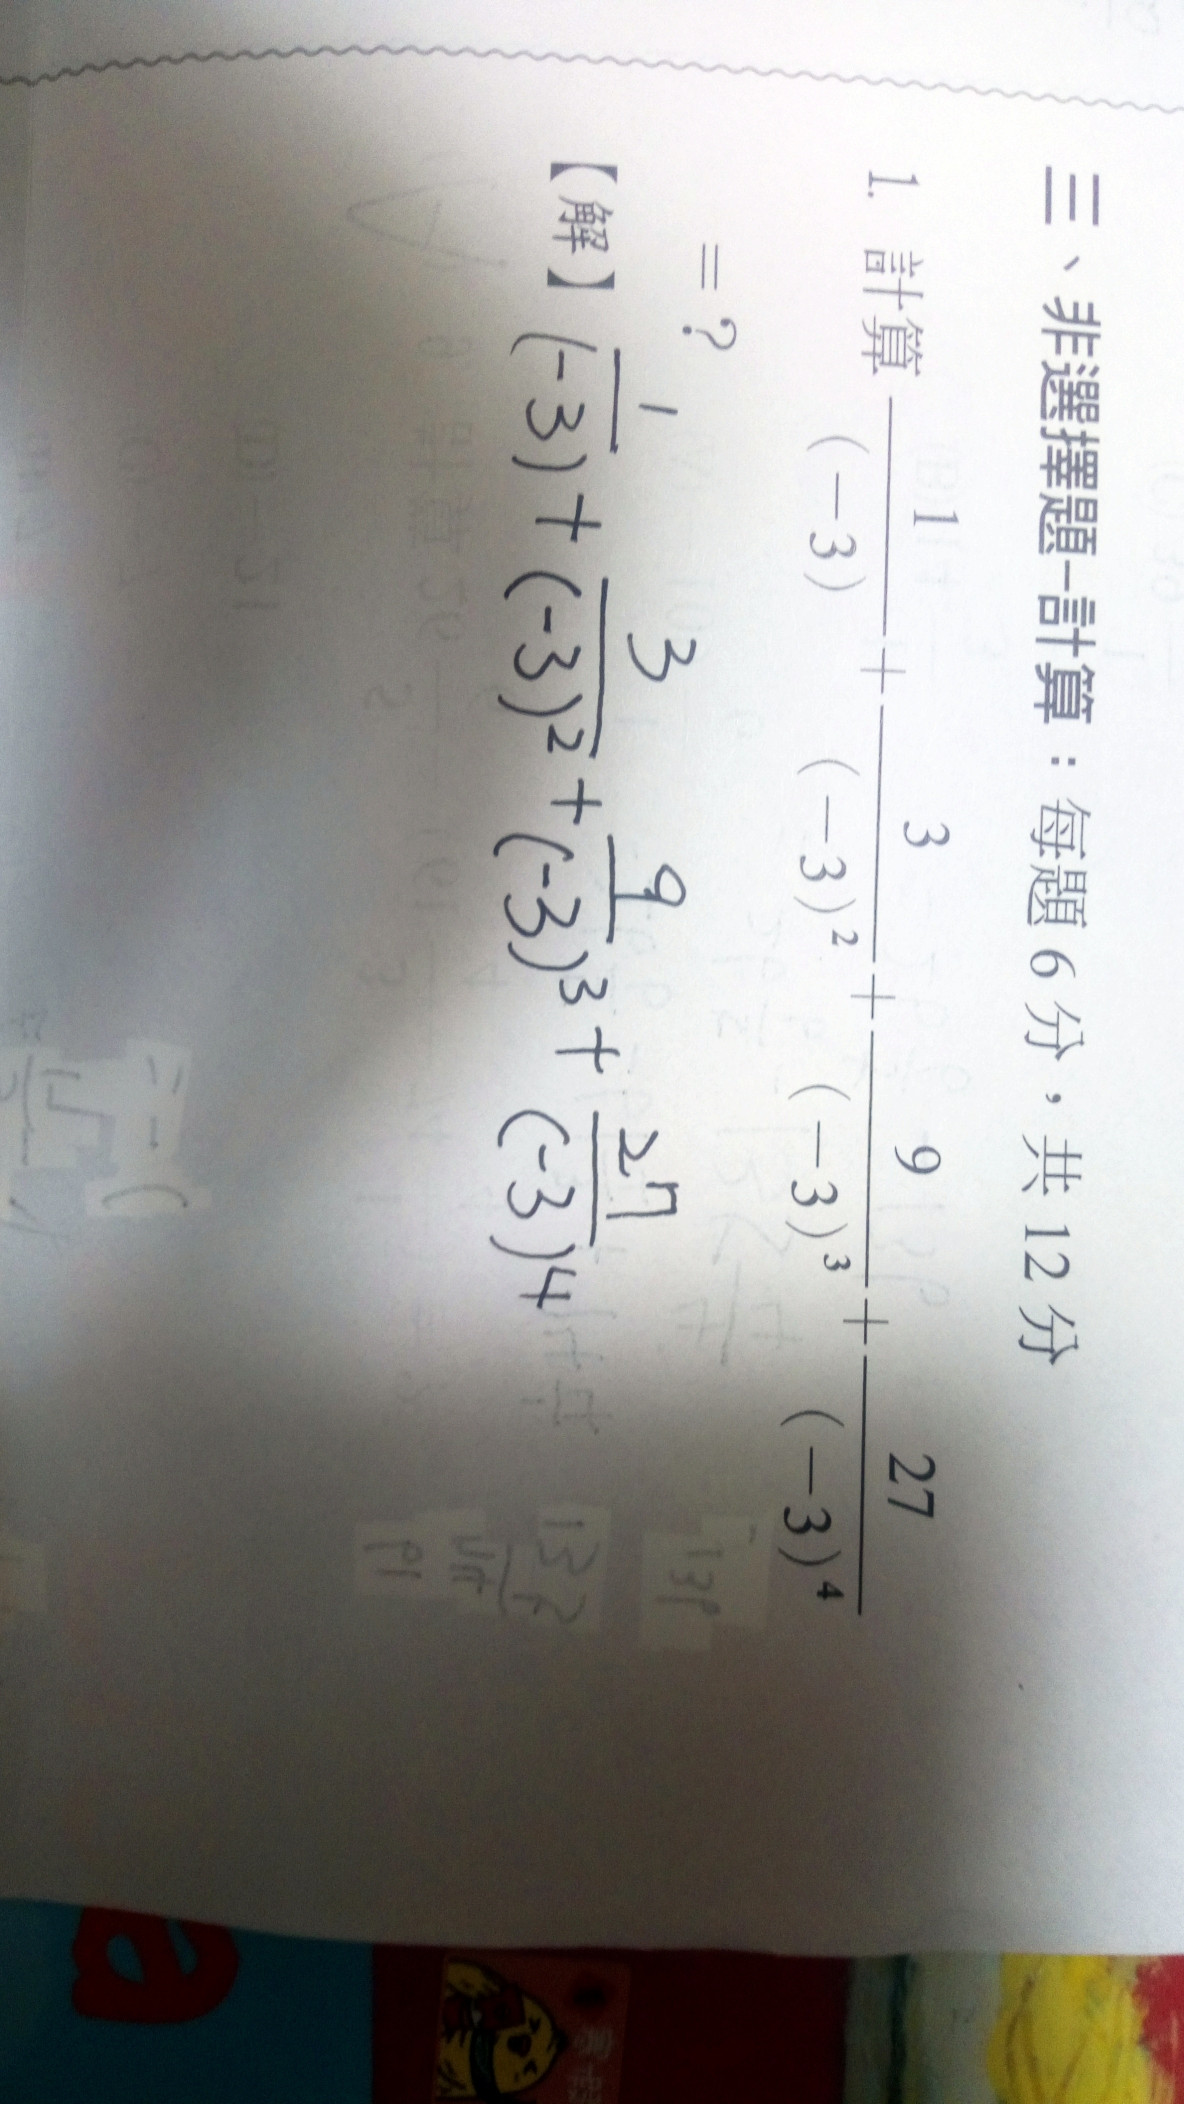 三、非選擇題-計算：每題 6 分，共 12 分
1. 計算 1/(－3) ＋ 3/(－3)² ＋ 9/(－3)³ ＋ 27/(－3)⁴
＝？
【解】 1/(-3) + 3/(-3)² + 9/(-3)³ + 27/(-3)⁴